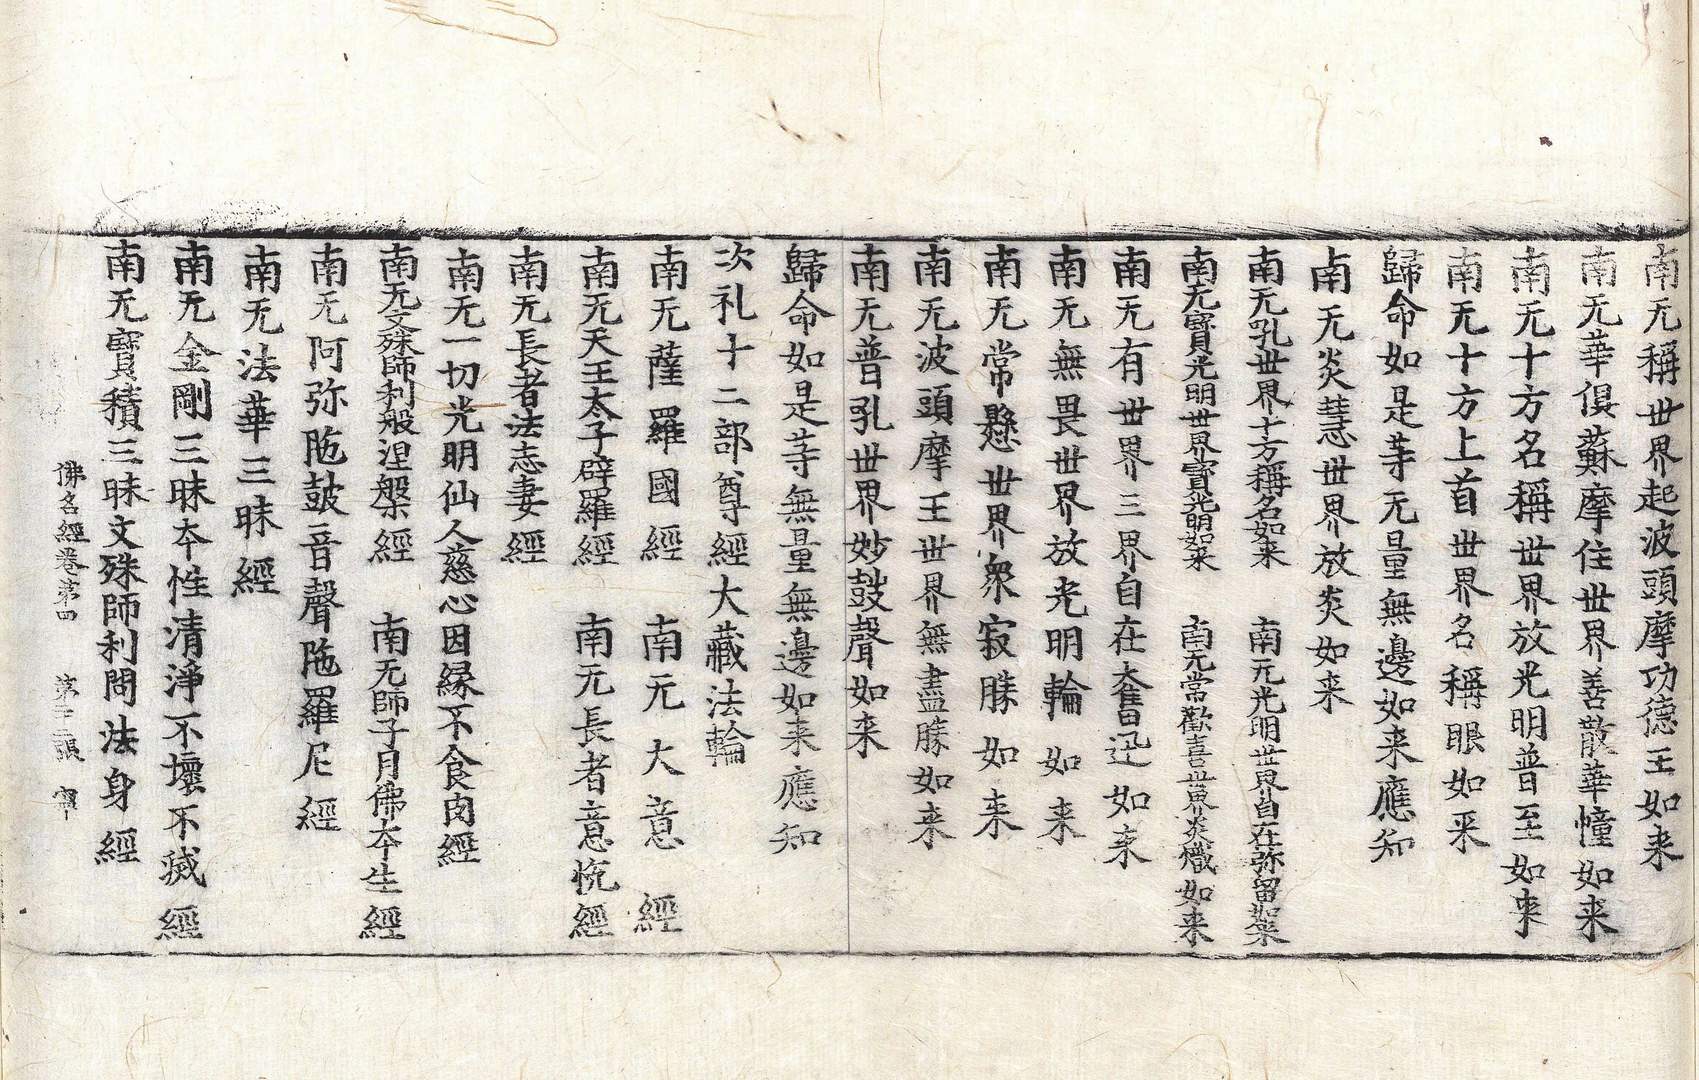 南无稱世界起波頭摩功德王如来
南无華俱蘇摩住世界善散華幢如来
南无十方名稱世界放光明普至如来
南无十方上首世界名稱眼如来
歸命如是等无量無邊如来應知
南无炎慧世界放炎如来
南无吼世界十方稱名如来　南无光明世界自在弥留如来
南无寶光明世界寶光明如来　南无常歡喜世界炎熾如来
南无有世界三界自在奮迅如来
南无無畏世界放光明輪如来
南无常懸世界衆寂勝如来
南无波頭摩王世界無盡勝如来
南无普吼世界妙鼓聲如来
歸命如是等無量無邊如来應知
次礼十二部尊經大藏法輪
南无薩羅國經　南无大意經
南无天王太子辟羅經　南无長者意恱經
南无長者法志妻經
南无一切光明仙人慈心因緣不食肉經
南无文殊師利般涅槃經　南无師子月佛夲生經
南无阿弥陁鼓音聲陁羅尼經
南无法華三昧經
南无金剛三昧夲性清淨不壞不滅經
南无寶積三昧文殊師利問法身經
佛名經卷第四　第十二張　寧